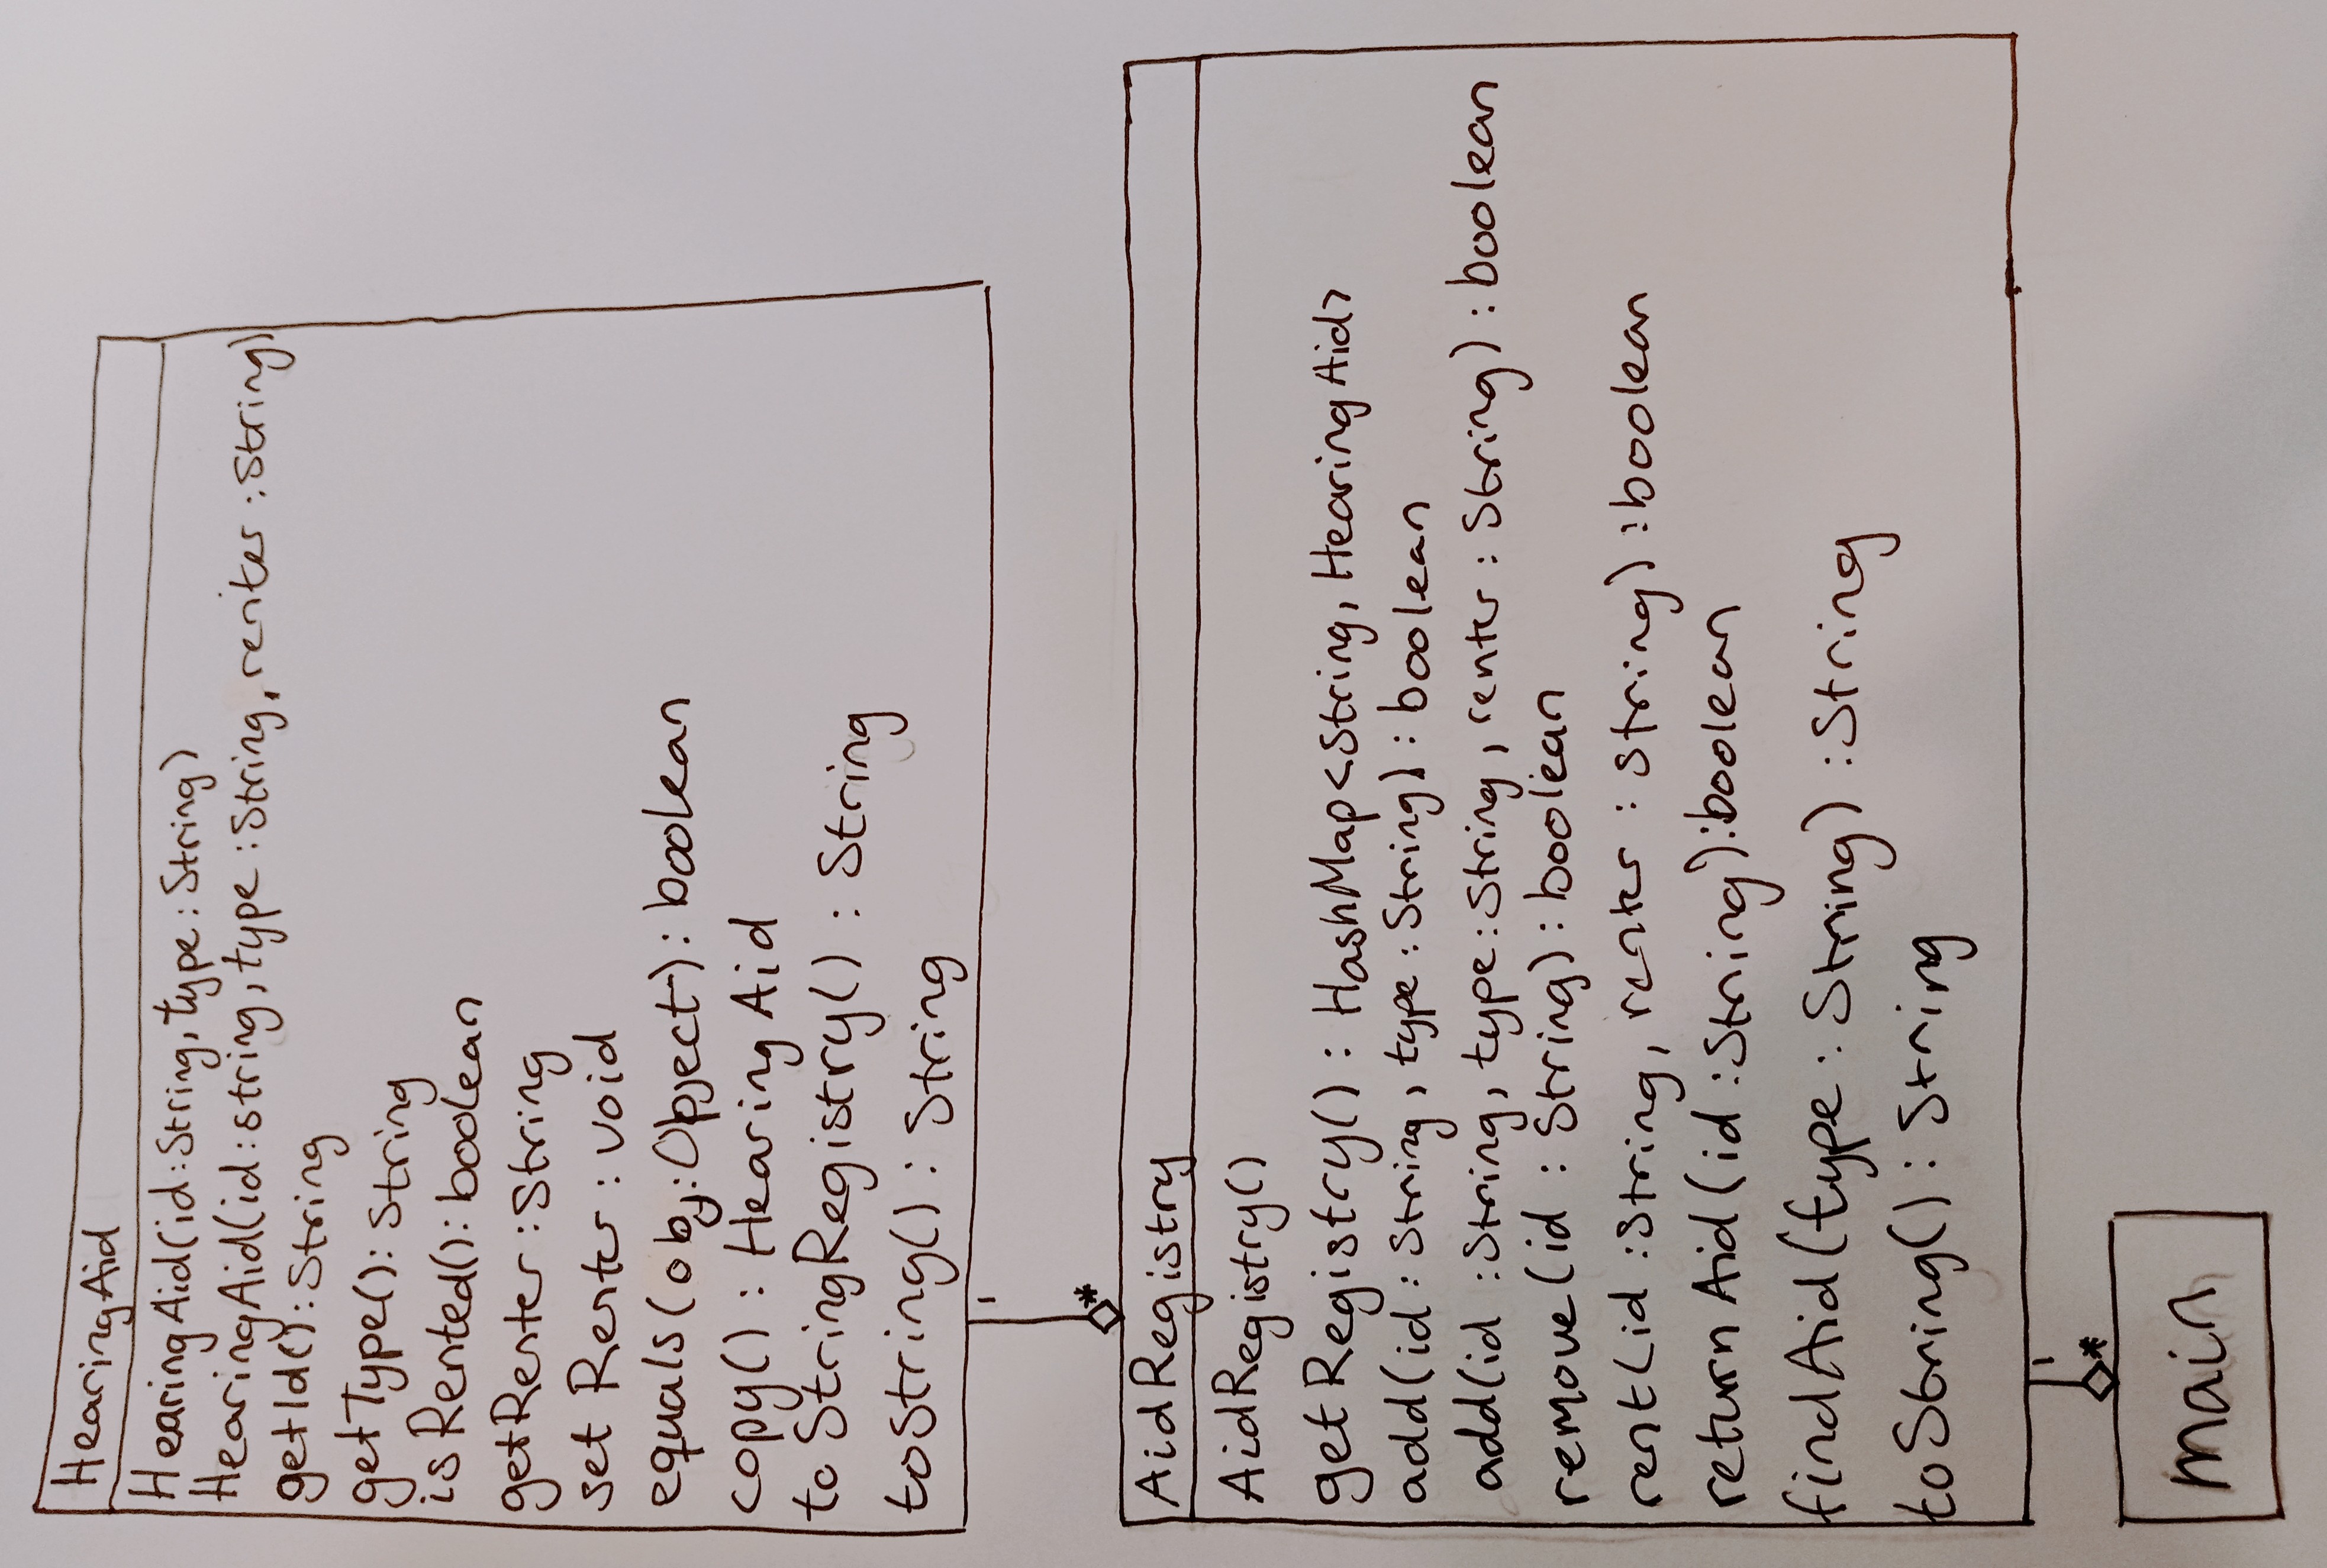 HearingAid
HearingAid(id:String, type:String)
HearingAid(id:string, type:String, renter:String)
getId():String
getType():String
isRented():boolean
getRenter:String
set Renter:void
equals(obj:Object):boolean
copy():HearingAid
toStringRegistry():String
toString():String
1
*
AidRegistry
AidRegistry()
getRegistry():HashMap<String, HearingAid>
add(id:String, type:String):boolean
add(id:String, type:String, renter:String):boolean
remove(id:String):boolean
rent(id:String, renter:String):boolean
returnAid(id:String):boolean
findAid(type:String):String
toString():String
1
*
main